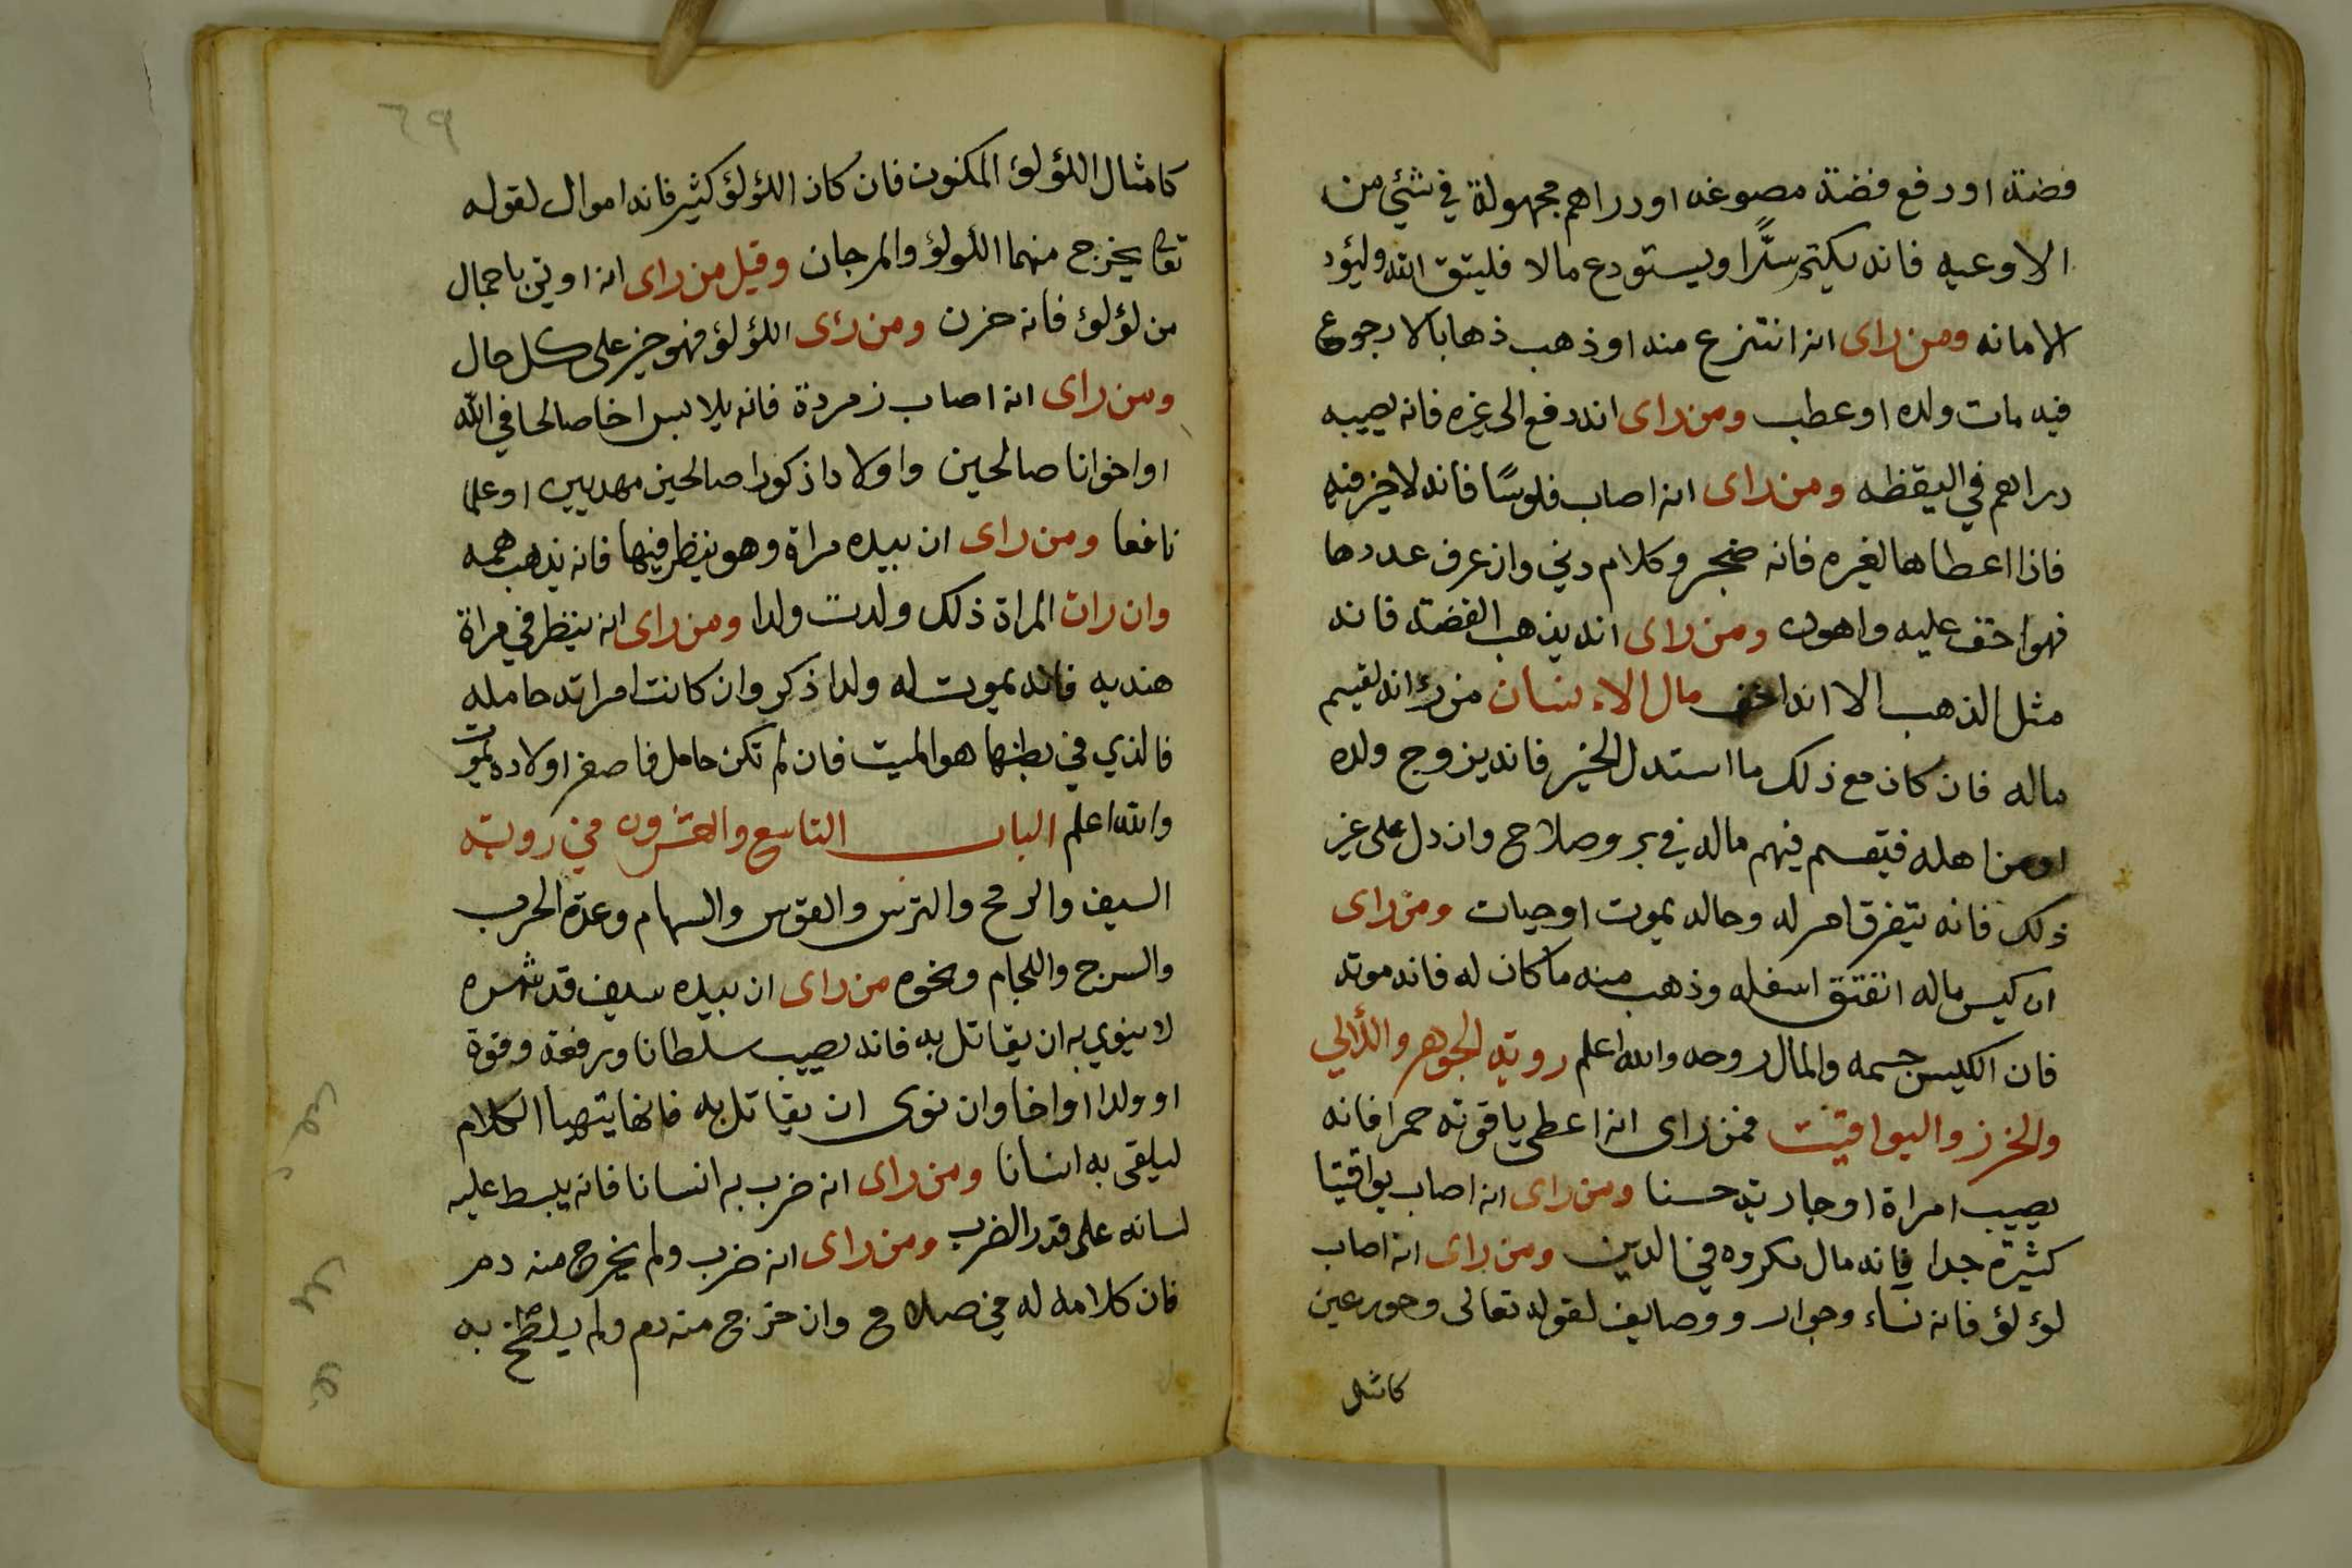 فضة او دفع فضة مصوغه او دراهم مجهولة في شئي من
الاوعيه فانه يكتم سرًّا ويستودع مالا فليتق الله وليؤد
الامانه ومن راى انه انتزع منه او ذهب ذهابا لا رجوع
فيه مات ولده او عطب ومن راى انه دفع الى غيره فانه يصيبه
دراهم في اليقظه ومن راى انه اصاب فلوسًا فانه لا خير فيه
فاذا اعطاها لغيره فانه ضجر وكلام دني وان عرف عددها
فهو اخف عليه واهون ومن راى انه يذهب الفضة فانه
مثل الذهب الا انه اخف مال الانسان من راى انه يقسم
ماله فان كان مع ذلك ما استدل الخير فانه يزوج ولده
او من اهله فيقسم فيهم ماله في بر وصلاح وان دل على غير
ذلك فانه يتفرق امر له وحاله يموت او حيات ومن راى
ان كيس ماله انفتق اسفله وذهب منه ما كان له فانه موته
فان الكيس جسمه والمال روحه والله اعلم روية الجوهر واللألي
والخرز واليواقيت فمن راى انه اعطى ياقوته حمرا فانه
يصيب امراة او جارية حسنا ومن راى انه اصاب يواقيتا
كثيرة جدا فانه مال مكروه في الدين ومن راى انه اصاب
لؤلؤ فانه نساء وجوار ووصايف لقوله تعالى وحور عين
كامثل
٢٩
كامثال اللؤلؤ المكنون فان كان اللؤلؤ كثير فانه اموال لقوله
تعالى يخرج منهما اللولؤ والمرجان وقيل من راى انه اوتي باحمال
من لؤلؤ فانه حزن ومن رأى اللؤلؤ فهو خير على كل حال
ومن راى انه اصاب زمردة فانه يلابس اخا صالحا في الله
او اخوانا صالحين واولادا ذكورا صالحين مهديين او علما
نافعا ومن راى ان بيده مراة وهو ينظر فيها فانه يذهب همه
وان رات المراة ذلك ولدت ولدا ومن راى انه ينظر في مراة
هنديه فانه يموت له ولدا ذكر وان كانت امراته حامله
فالذي في بطنها هو الميت فان لم تكن حامل فاصغر اولاده يموت
والله اعلم الباب التاسع والعشرون في روية
السيف والرمح والترس والقوس والسهام وعدة الحرب
والسرج واللجام ونحوه من راى ان بيده سيف قد شهره
لا ينوي به ان يقاتل به فانه يصيب سلطانا ورفعة وقوة
او ولدا او اخا وان نوى ان يقاتل به فانها يتهيا الكلام
ليلقى به انسانا ومن راى انه ضرب به انسانا فانه يبسط عليه
لسانه على قدر الضرب ومن راى انه ضرب ولم يخرج منه دم
فان كلامه له في صلاح وان خرج منه دم ولم يلطخ به